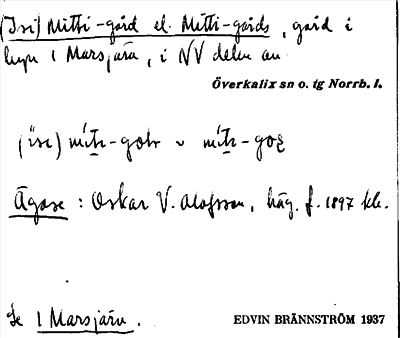 (Isi) Mitti-gård el. Mitti-gårds, gård i
byn 1 Marsjärv, i NV delen av
Överkalix sn o. tg Norrb. l.
Ägare : Oskar V. Olofsson, häg. f. 1897 kl.
Se 1 Marsjärv.
EDVIN BRÄNNSTRÖM 1937